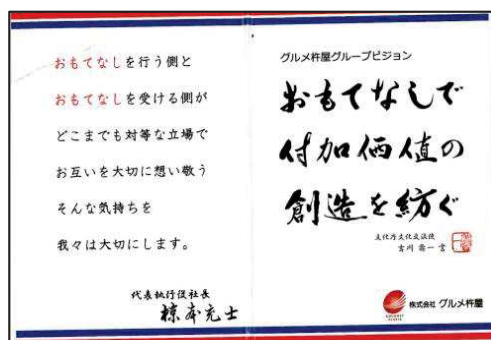 おもてなしを行う側と
おもてなしを受ける側が
どこまでも対等な立場で
お互いを大切に想い敬う
そんな気持ちを
我々は大切にします。
代表執行役社長
椋本充士
グルメ杵屋グループビジョン
おもてなしで
付加価値の
創造を紡ぐ
文化庁文化交流使
吉川壽一 言
株式会社 グルメ杵屋